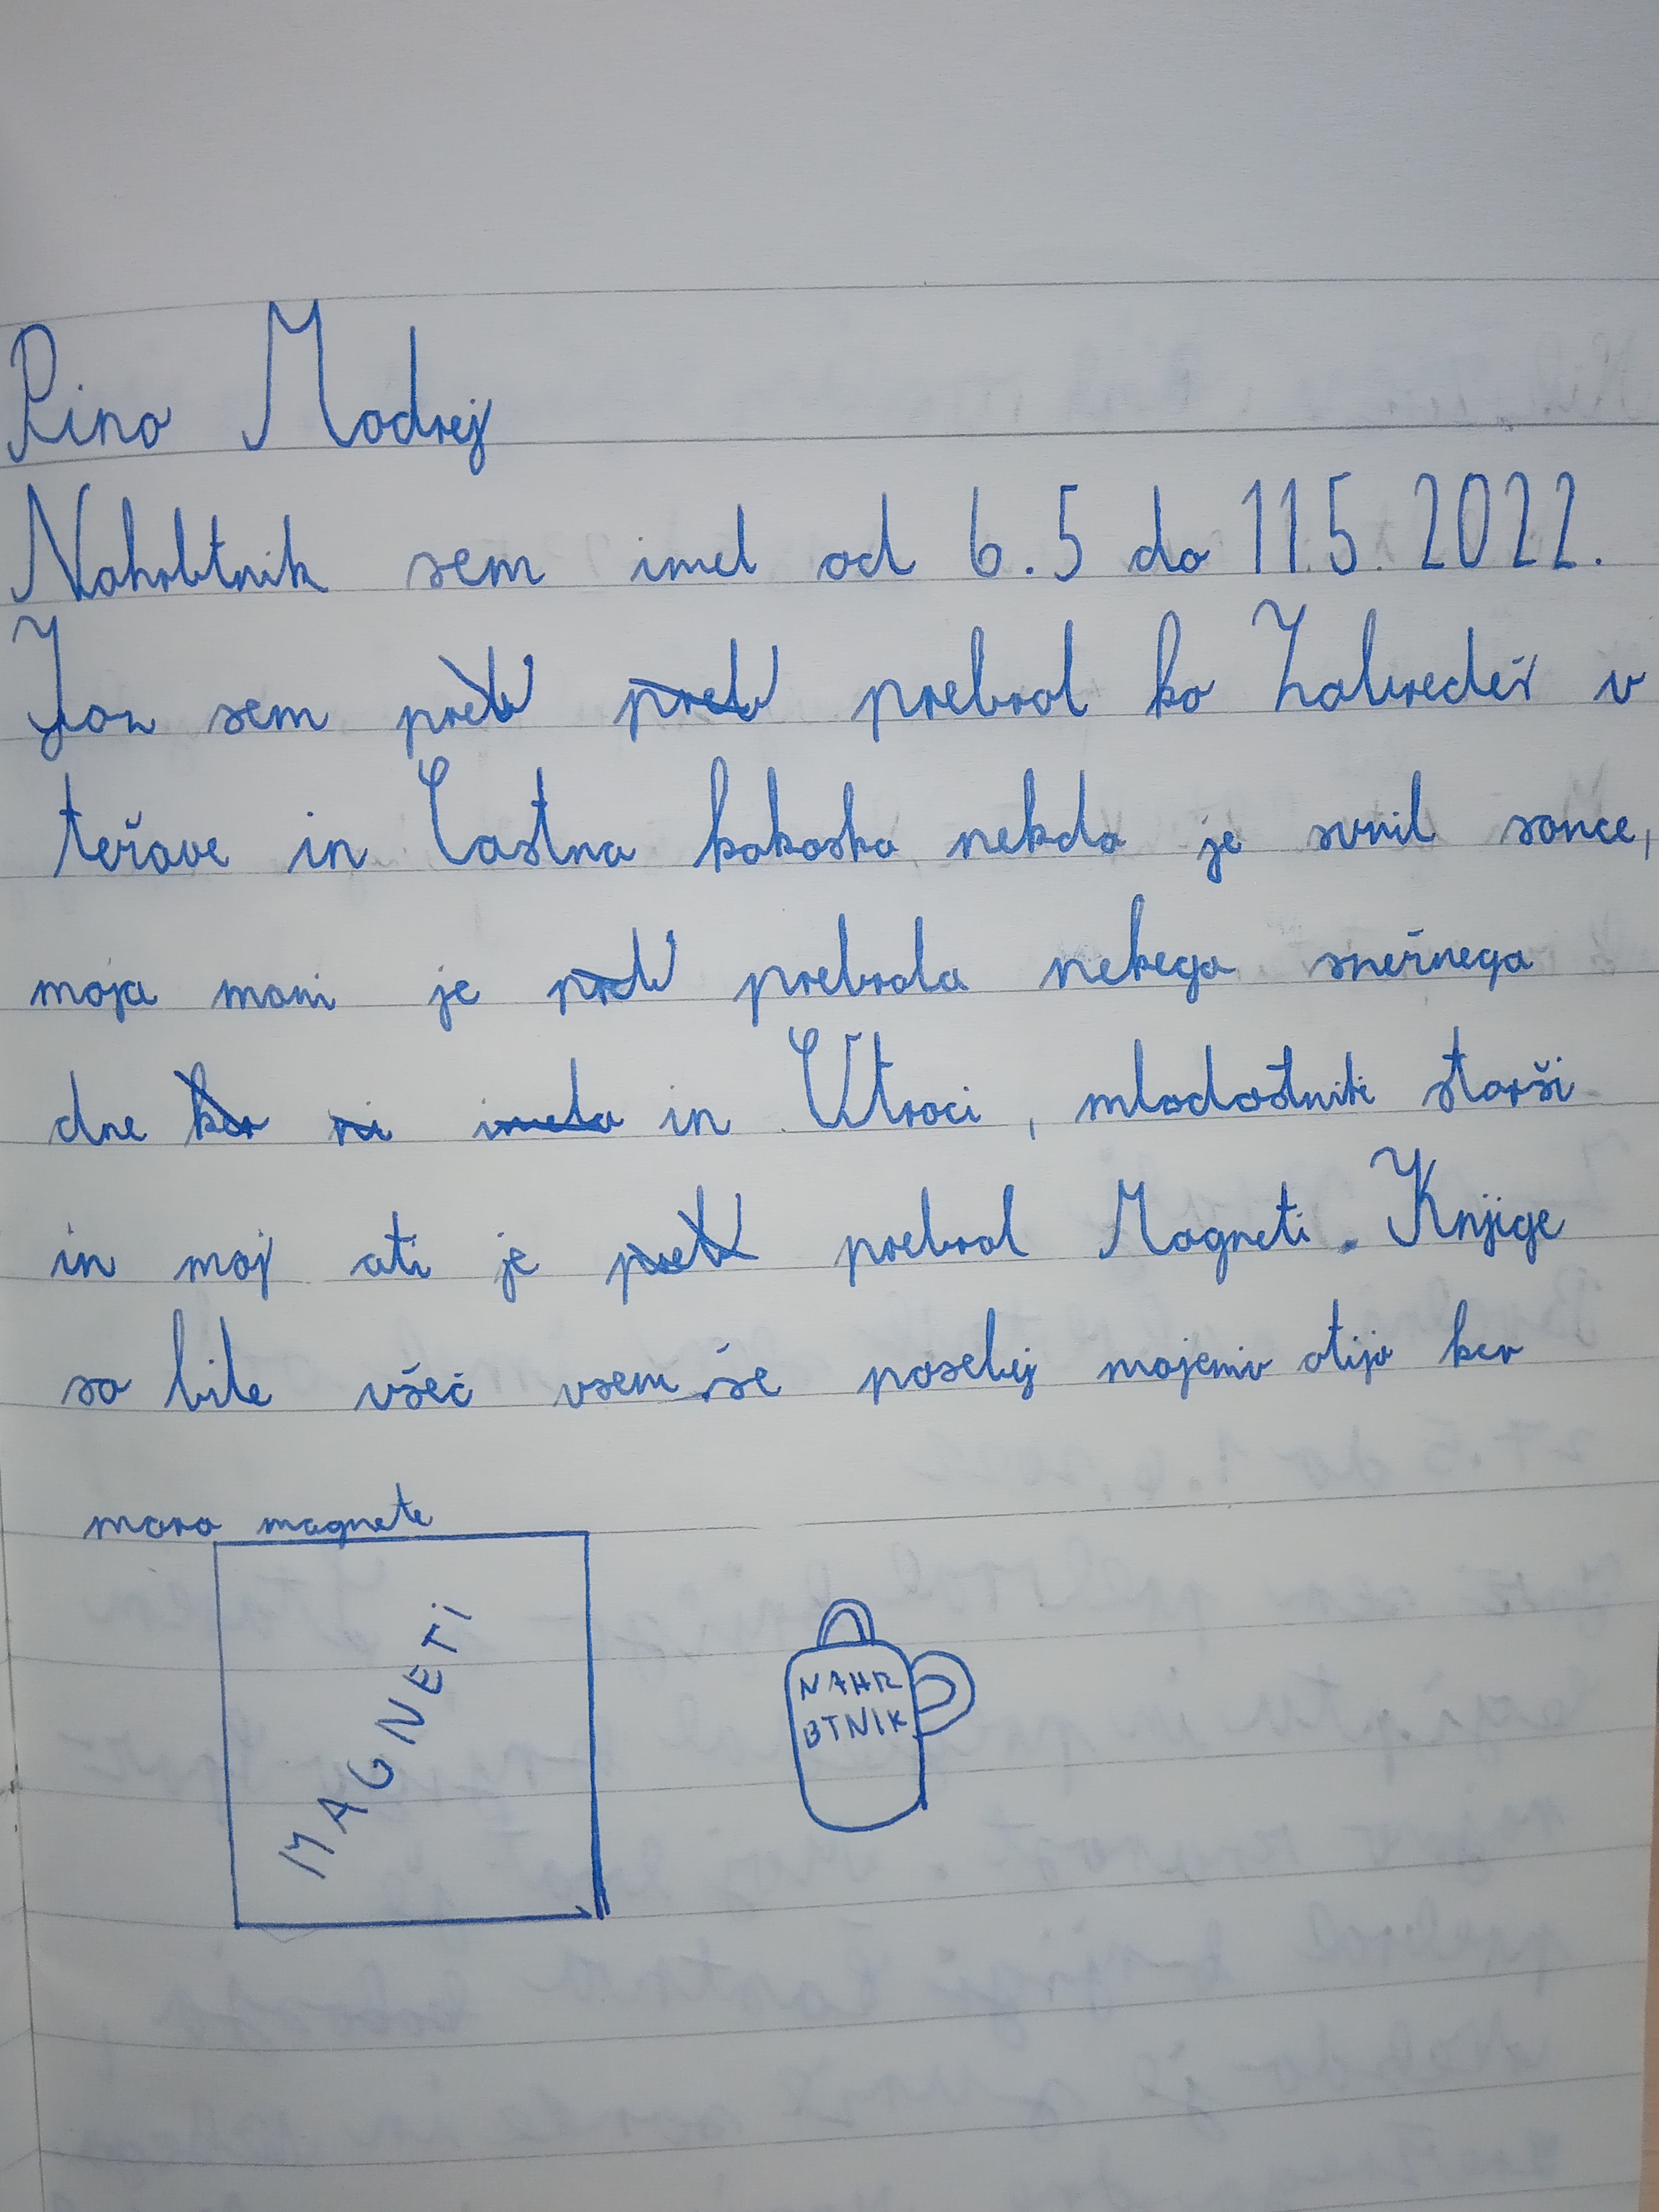 Pino Modrej
Nahrbtnik sem imel od 6.5 do 11.5.2022.
Jaz sem prebral ko Zabredeš v
težave in Častna kokoška, nekdo je sunil sonce,
moja mami je prebrala nekega snežnega
dne in Otroci, mladostniki starši
in moj ati je prebral Magneti. Knjige
so bile všeč vsem še posebej mojemu atiju ker
mara magnete
MAGNETI
NAHR
BTNIK